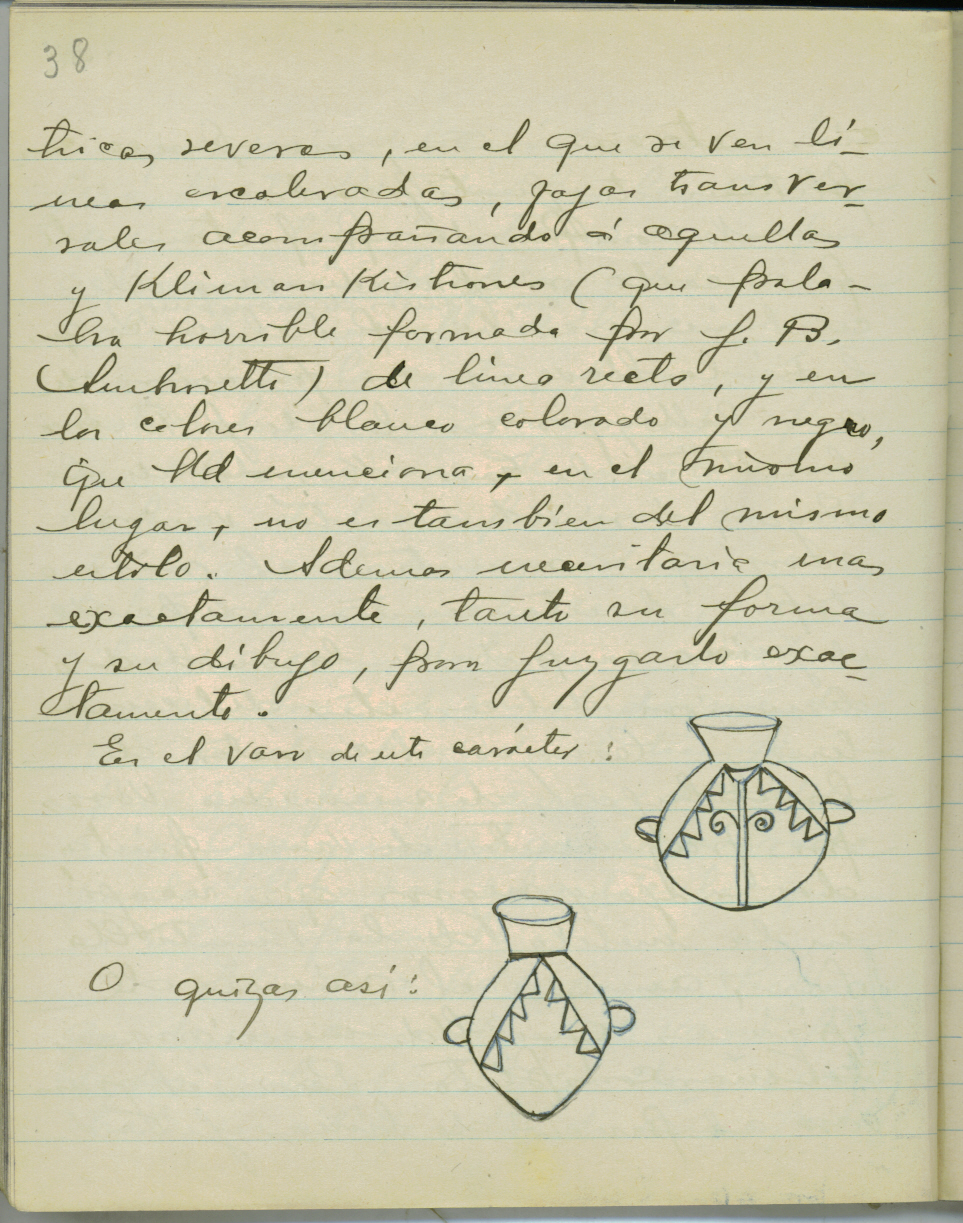 38
tricas severas, en el que se ven lí-
neas escaleradas, fajas transver-
sales acompañando á aquellas
y Kliman Kistrones (que pala-
bra horrible formada por J. B.
Ambrosetti) de linea recta, y en
los colores blanco colorado y negro,
que Ud menciona, en el mismo
lugar, no es también del mismo
estilo. Ademas necesitaria mas
exactamente, tanto su forma
y su dibujo, para juzgarlo exac-
tamente.
Es el vaso de este carácter:
O quizas así: